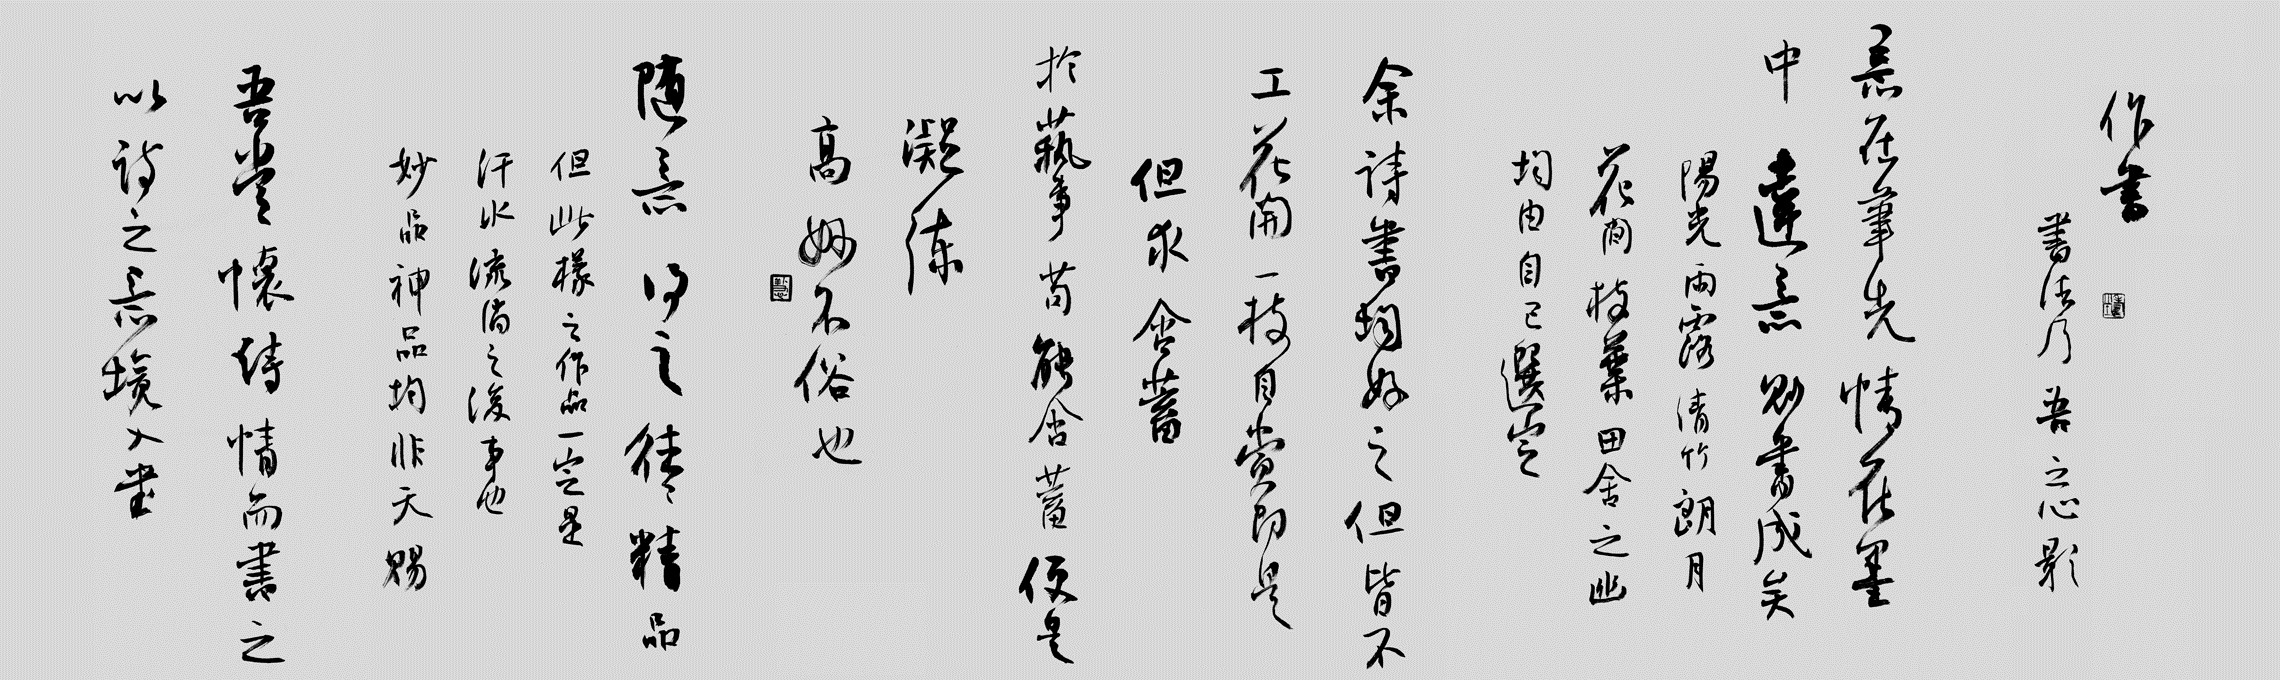 作書
書法乃吾之心影
意在筆先情在墨
中達意則書成矣
陽光雨露清竹朗月
花間枝葉田舍之幽
均由自己選定
余詩書均好之但皆不
工花開一枝自賞即是
但求含蓄
於藝事苟能含蓄便是
凝練
高妙不俗也
随意得之往往精品
但此樣之作品一定是
汗水流淌之後事也
妙品神品均非天賜
吾嘗懷詩情而書之
以詩之意境入書